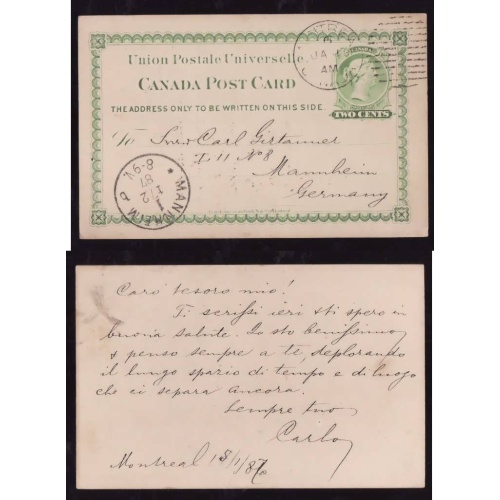 Union Postale Universelle
CANADA POST CARD
THE ADDRESS ONLY TO BE WRITTEN ON THIS SIDE.
CANADA
TWO CENTS
AM
To Carl Girtanner
No 8
Mannheim
Germany
MANNHEIM
1 12
87
8-9V.
Caro tesoro mio!
Ti scrissi ieri sti spero in
buona salute. Io sto benissimo
& penso sempre a te, deplorando
il lungo spazio di tempo e di luogo
che ci separa ancora.
Sempre tuo
Carlo
Montreal 18/1/87